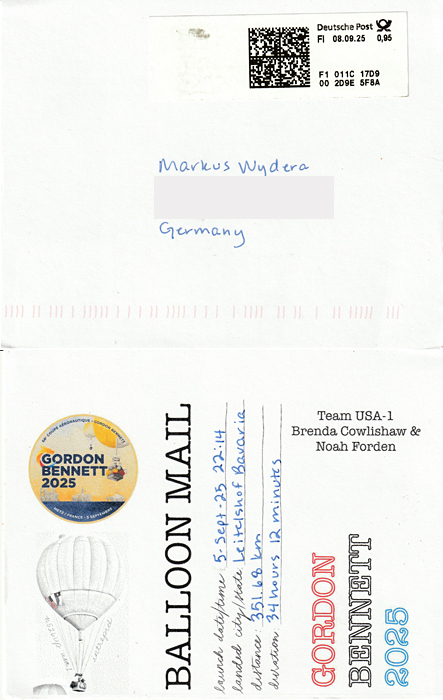 Deutsche Post
FI 08.09.25 0,95
F1 011C 17D9
00 2D9E 5F8A
Markus Wydera
Germany
GORDON
BENNETT
2025
METZ / FRANCE - 5 SEPTEMBRE
BALLOON MAIL
launch date/time: 5-Sept-25 22:14
landed city/state Leitelshof Bavaria
distance: 351.68 km
duration: 34 hours 12 minutes
Team USA-1
Brenda Cowlishaw &
Noah Forden
GORDON
BENNETT
2025